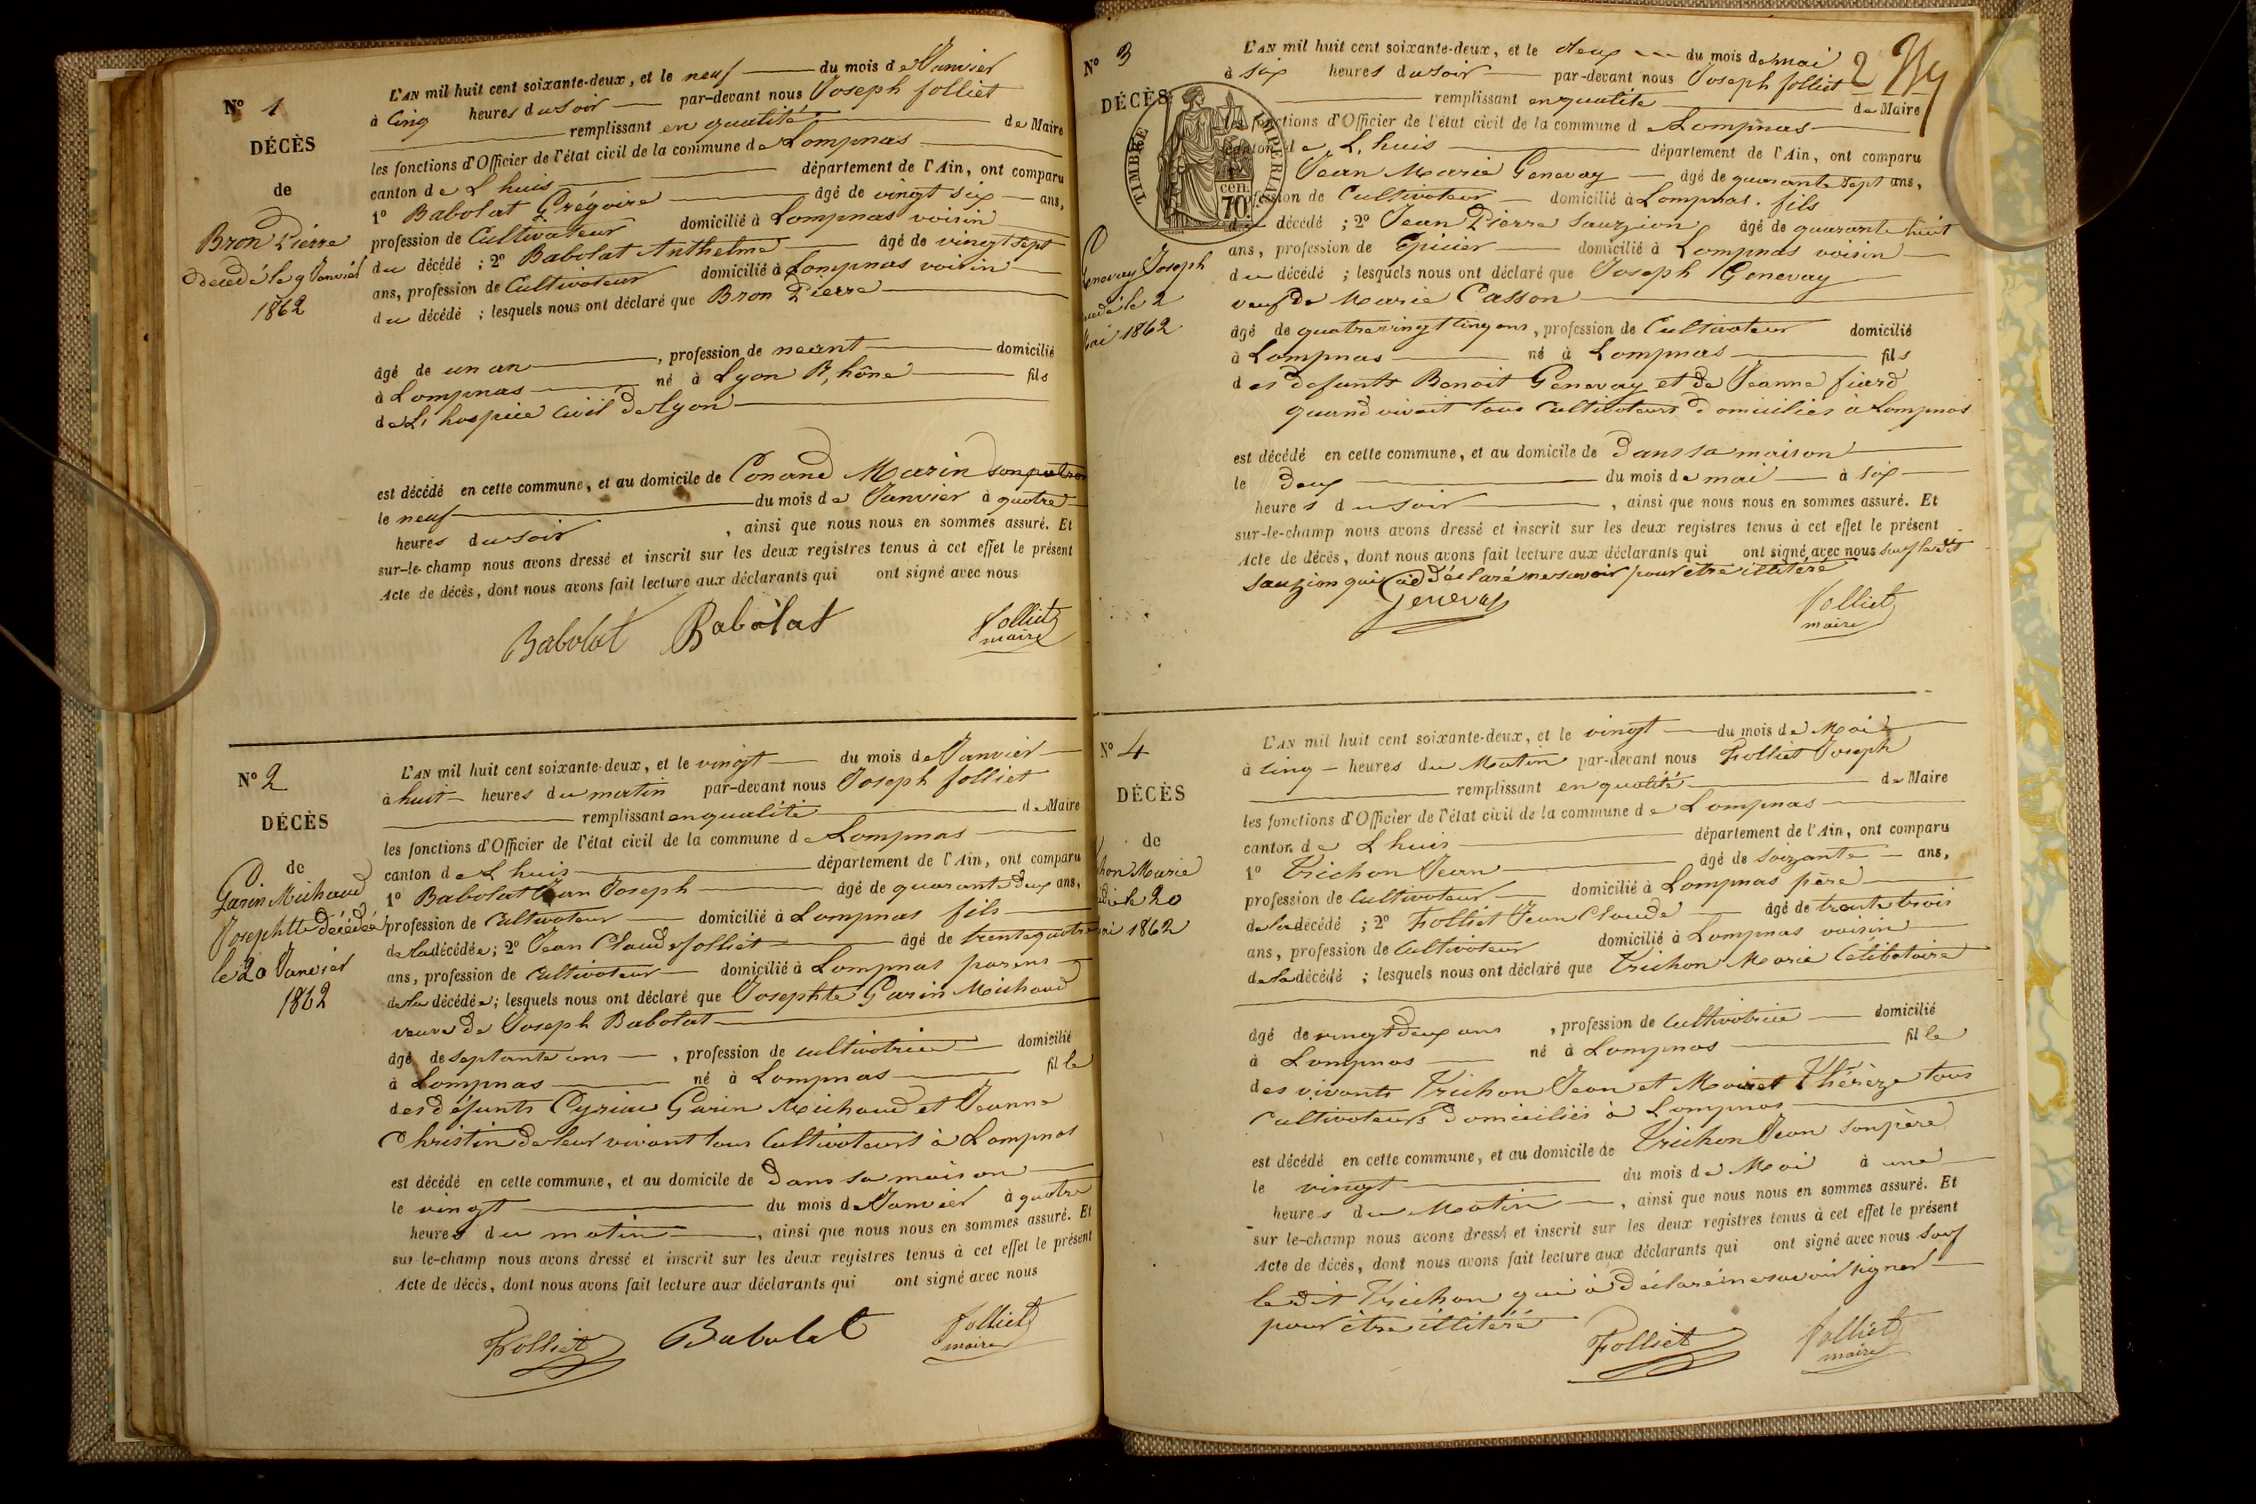 N° 1
DÉCÈS
de
Bron Pierre
décédé le 9 Janvier
1862
L'AN mil huit cent soixante-deux, et le neuf du mois de Janvier
à cinq heures du soir par-devant nous Joseph folliet
remplissant en qualité de Maire
les fonctions d'Officier de l'état civil de la commune de Lompnas
canton de L huis département de l'Ain, ont comparu
1° Babolat Grégoire âgé de vingt six ans,
profession de Cultivateur domicilié à Lompnas voisin
du décédé ; 2° Babolat Anthelme âgé de vingt sept
ans, profession de Cultivateur domicilié à Lompnas voisin
du décédé ; lesquels nous ont déclaré que Bron Pierre
âgé de un an , profession de neant domicilié
à Lompnas né à Lyon Rhône fils
de L'hospice civil de Lyon
est décédé en cette commune, et au domicile de Conand Marin son patron
le neuf du mois de Janvier à quatre
heures du soir , ainsi que nous nous en sommes assuré. Et
sur-le-champ nous avons dressé et inscrit sur les deux registres tenus à cet effet le présent
Acte de décès, dont nous avons fait lecture aux déclarants qui ont signé avec nous
Babolat Babolat folliet
maire
N° 2
DÉCÈS
de
Garin Michaud
Josephte décédée
le 20 Janvier
1862
L'AN mil huit cent soixante-deux, et le vingt du mois de Janvier
à huit heures du matin par-devant nous Joseph folliet
remplissant en qualité de Maire
les fonctions d'Officier de l'état civil de la commune de Lompnas
canton de L huis département de l'Ain, ont comparu
1° Babolat Jean Joseph âgé de quarante deux ans,
profession de Cultivateur domicilié à Lompnas fils
de la décédée ; 2° Jean Claude folliet âgé de trente quatre
ans, profession de Cultivateur domicilié à Lompnas parens
de la décédée ; lesquels nous ont déclaré que Josephte Garin Michaud
veuve de Joseph Babolat
âgé de septante ans , profession de cultivatrice domicilié
à Lompnas né à Lompnas fille
des défunts Cyriac Garin Michaud et Jeanne
Christin de leur vivant tous Cultivateurs à Lompnas
est décédé en cette commune, et au domicile de dans sa maison
le vingt du mois de Janvier à quatre
heures du matin , ainsi que nous nous en sommes assuré. Et
sur le-champ nous avons dressé et inscrit sur les deux registres tenus à cet effet le présent
Acte de décès, dont nous avons fait lecture aux déclarants qui ont signé avec nous
Folliet Babolat folliet
maire
2
N° 3
DÉCÈS
TIMBRE IMPÉRIAL
cen.
70.
Genevay Joseph
le 2
1862
L'AN mil huit cent soixante-deux, et le deux du mois de mai
à six heures du soir par-devant nous Joseph folliet
remplissant en qualité de Maire
les fonctions d'Officier de l'état civil de la commune de Lompnas
canton de L. huis département de l'Ain, ont comparu
Jean Marie Genevay âgé de quarante sept ans,
profession de Cultivateur domicilié à Lompnas. fils
du décédé ; 2° Jean Pierre Sauzion âgé de quarante huit
ans, profession de Epicier domicilié à Lompnas voisin
du décédé ; lesquels nous ont déclaré que Joseph Genevay
veuf de Marie Casson
âgé de quatre vingt cinq ans, profession de Cultivateur domicilié
à Lompnas né à Lompnas fils
des defunts Benoit Genevay et de Jeanne fiard
quand vivait tous Cultivateurs domiciliés à Lompnas
est décédé en cette commune, et au domicile de dans sa maison
le deux du mois de mai à six
heures du soir , ainsi que nous nous en sommes assuré. Et
sur-le-champ nous avons dressé et inscrit sur les deux registres tenus à cet effet le présent
Acte de décès, dont nous avons fait lecture aux déclarants qui ont signé avec nous sauf ledit
Sauzion qui a déclaré ne savoir pour être illitéré
Genevay folliet
maire
N° 4
DÉCÈS
de
hon Marie
le 20
1862
L'AN mil huit cent soixante-deux, et le vingt du mois de Mai
à cinq heures du Matin par-devant nous Folliet Joseph
remplissant en qualité de Maire
les fonctions d'Officier de l'état civil de la commune de Lompnas
canton de L huis département de l'Ain, ont comparu
1° Trichon Jean âgé de soixante ans,
profession de Cultivateur domicilié à Lompnas père
de la décédé ; 2° Folliet Jean Claude âgé de trente trois
ans, profession de Cultivateur domicilié à Lompnas voisin
de la décédé ; lesquels nous ont déclaré que Trichon Marie Célibataire
âgé de vingt deux ans , profession de Cultivatrice domicilié
à Lompnas né à Lompnas fille
des vivants Trichon Jean et Thérèze tous
Cultivateurs domiciliés à Lompnas
est décédé en cette commune, et au domicile de Trichon Jean son père
le vingt du mois de Mai à une
heures du Matin , ainsi que nous nous en sommes assuré. Et
sur le-champ nous avons dressé et inscrit sur les deux registres tenus à cet effet le présent
Acte de décès, dont nous avons fait lecture aux déclarants qui ont signé avec nous sauf
le dit Trichon qui à déclaré ne savoir signer
pour être illitéré
Folliet folliet
maire